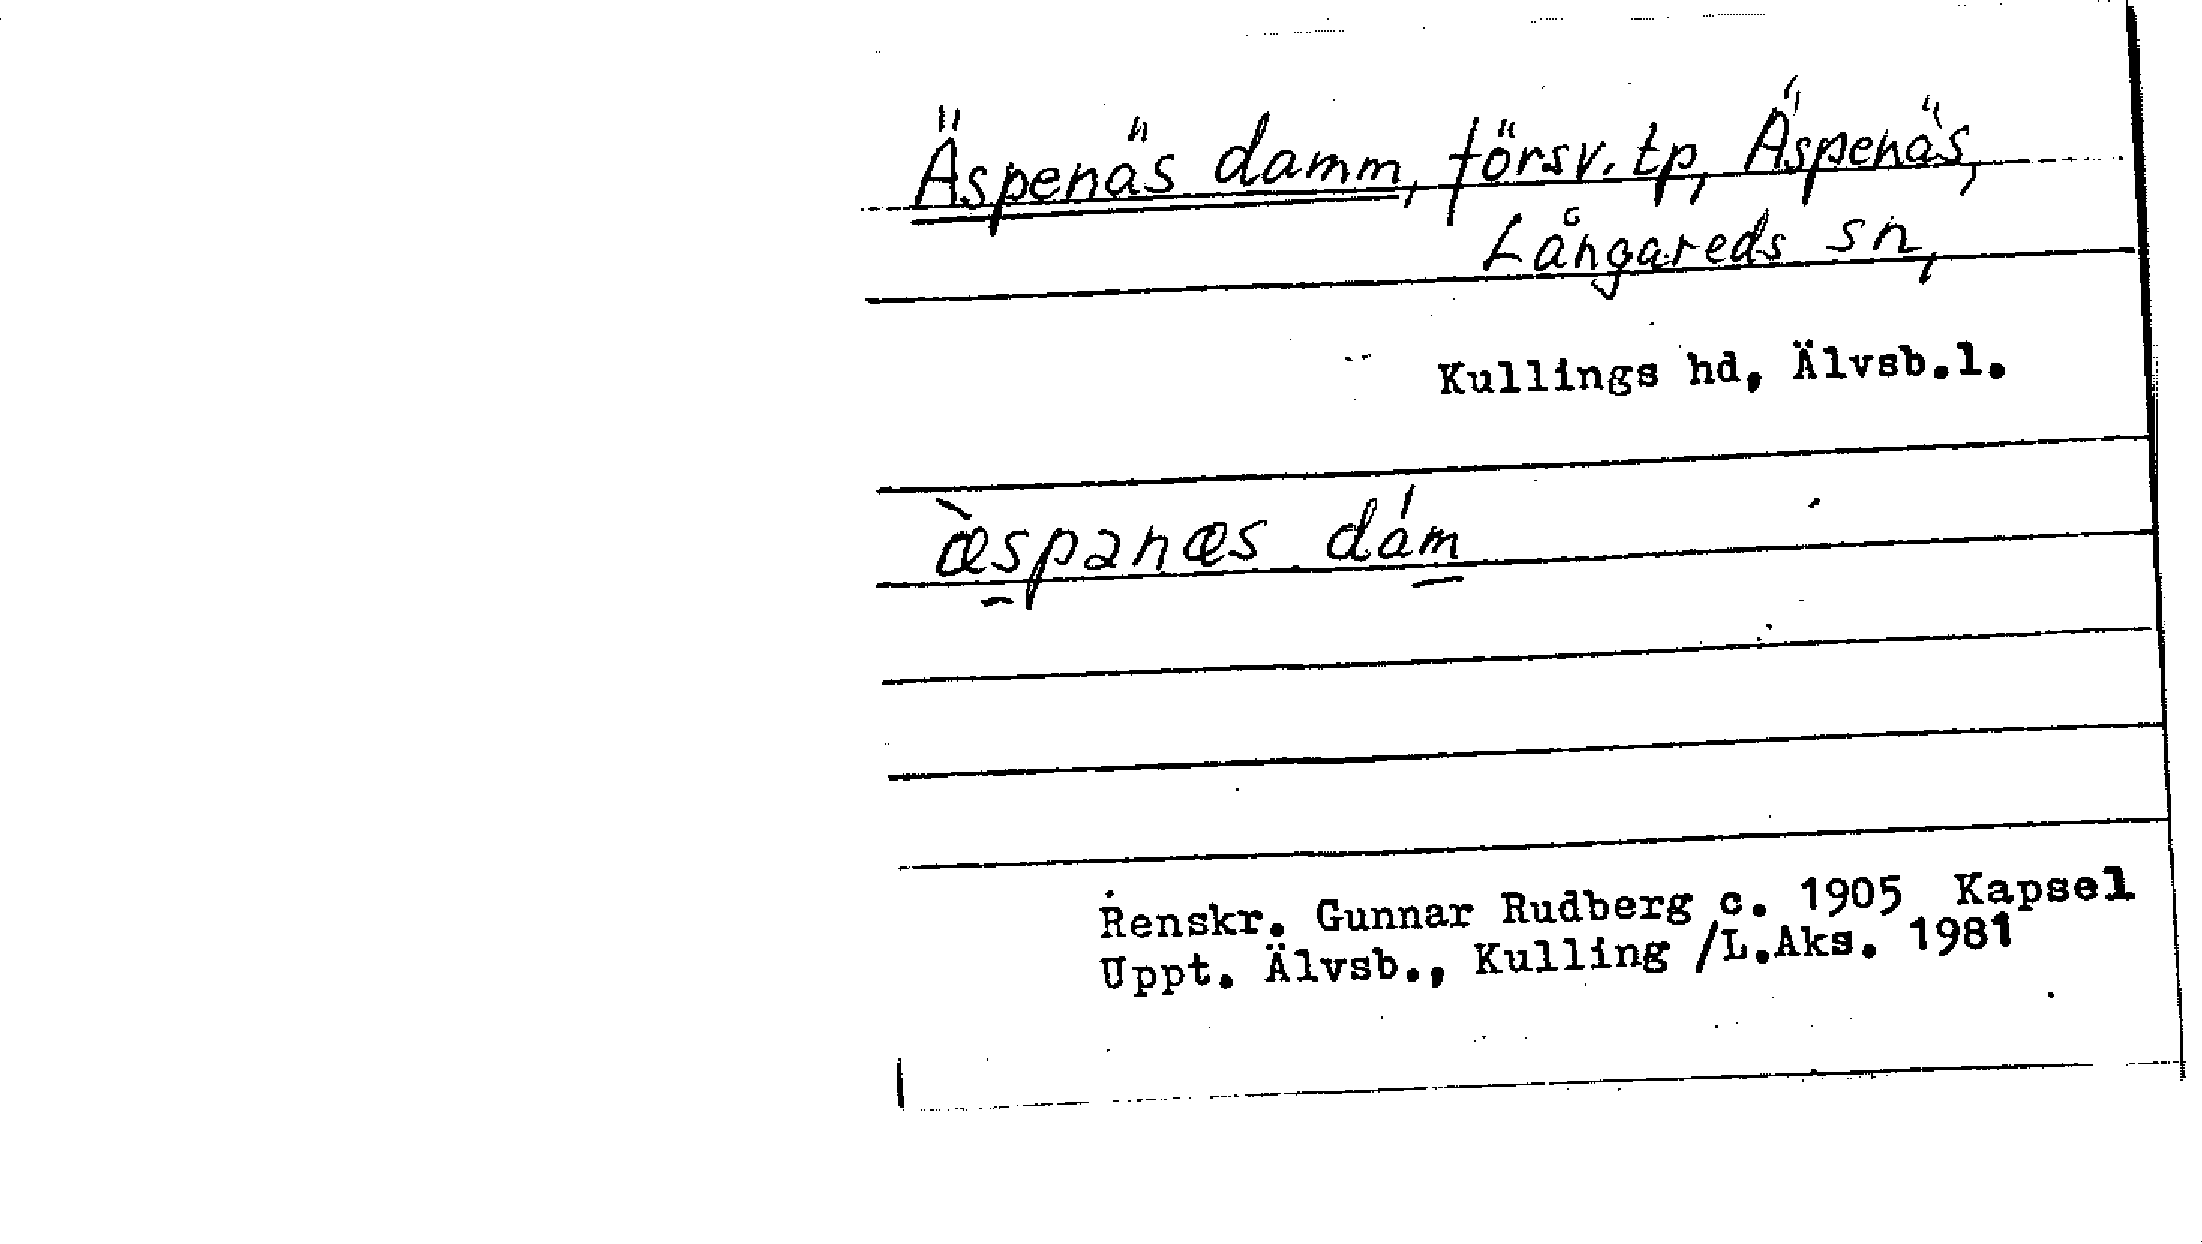 Äspenäs damm, försv. tp, Äspenäs,
Långareds sn,
Kullings hd, Älvsb.l.
æ̀s̠panæs dám̠
Renskr. Gunnar Rudberg c. 1905 Kapsel
Uppt. Älvsb., Kulling /L.Aks. 1981